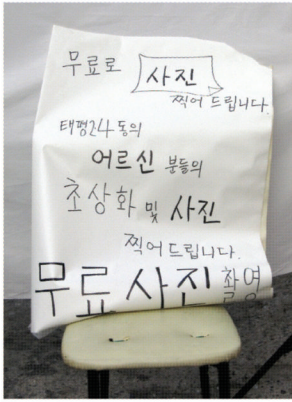 무료로 사진
찍어 드립니다.
태평2동의
어르신 분들의
초상화 및 사진
찍어드립니다.
무료 사진 촬영